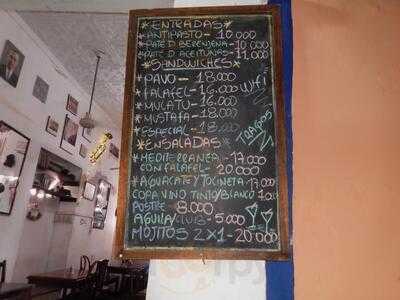 *ENTRADAS*
*ANTIPASTO - 10.000
*PATE D BERENJENA - 10.000
*PATE D ACEITUNAS - 11.000
*SANDWICHES*
*PAVO - 18.000
*FALAFEL - 16.000
WIFI
*MULATO - 16.000
*MUSTAFA - 18.000
*ESPECIAL - 18.000
TRAGOS
*ENSALADAS*
*MEDITERRANEA - 17.000
CON FALAFEL - 20.000
*AGUACATE Y TOCINETA 17.000
COPA VINO TINTO/BLANCO
POSTRE - 8.000
AGUILA/CLUB - 5.000
MOJITOS 2X1 - 20.000